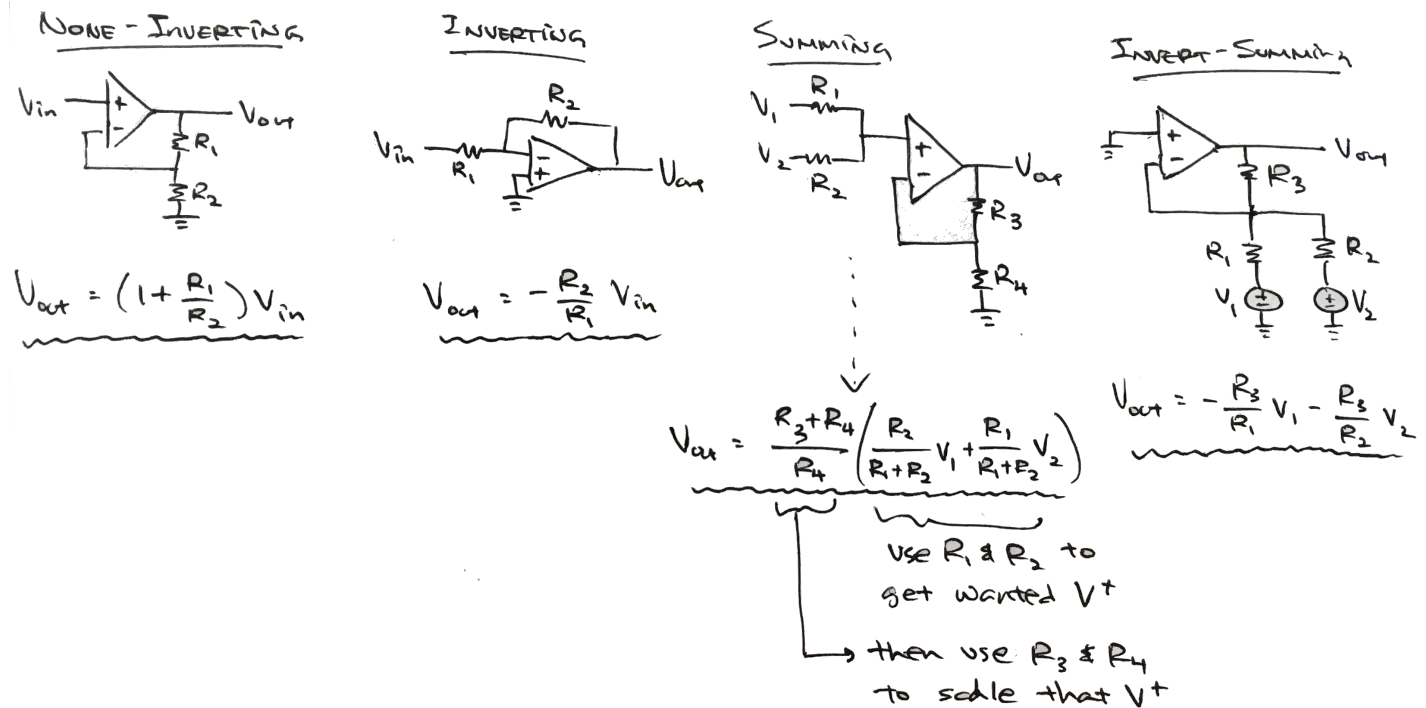 NONE-INVERTING
Vin
+
-
Vout
R1
R2
Vout = (1 + R1/R2) Vin
INVERTING
R2
Vin
R1
-
+
Vout
Vout = - R2/R1 Vin
SUMMING
R1
V1
V2
R2
+
-
Vout
R3
R4
Vout = R3+R4/R4 (R2/R1+R2 V1 + R1/R1+R2 V2)
use R1 & R2 to
get wanted V+
then use R3 & R4
to scale that V+
INVERT-SUMMING
+
-
Vout
R3
R1
R2
V1
±
±
V2
Vout = - R3/R1 V1 - R3/R2 V2